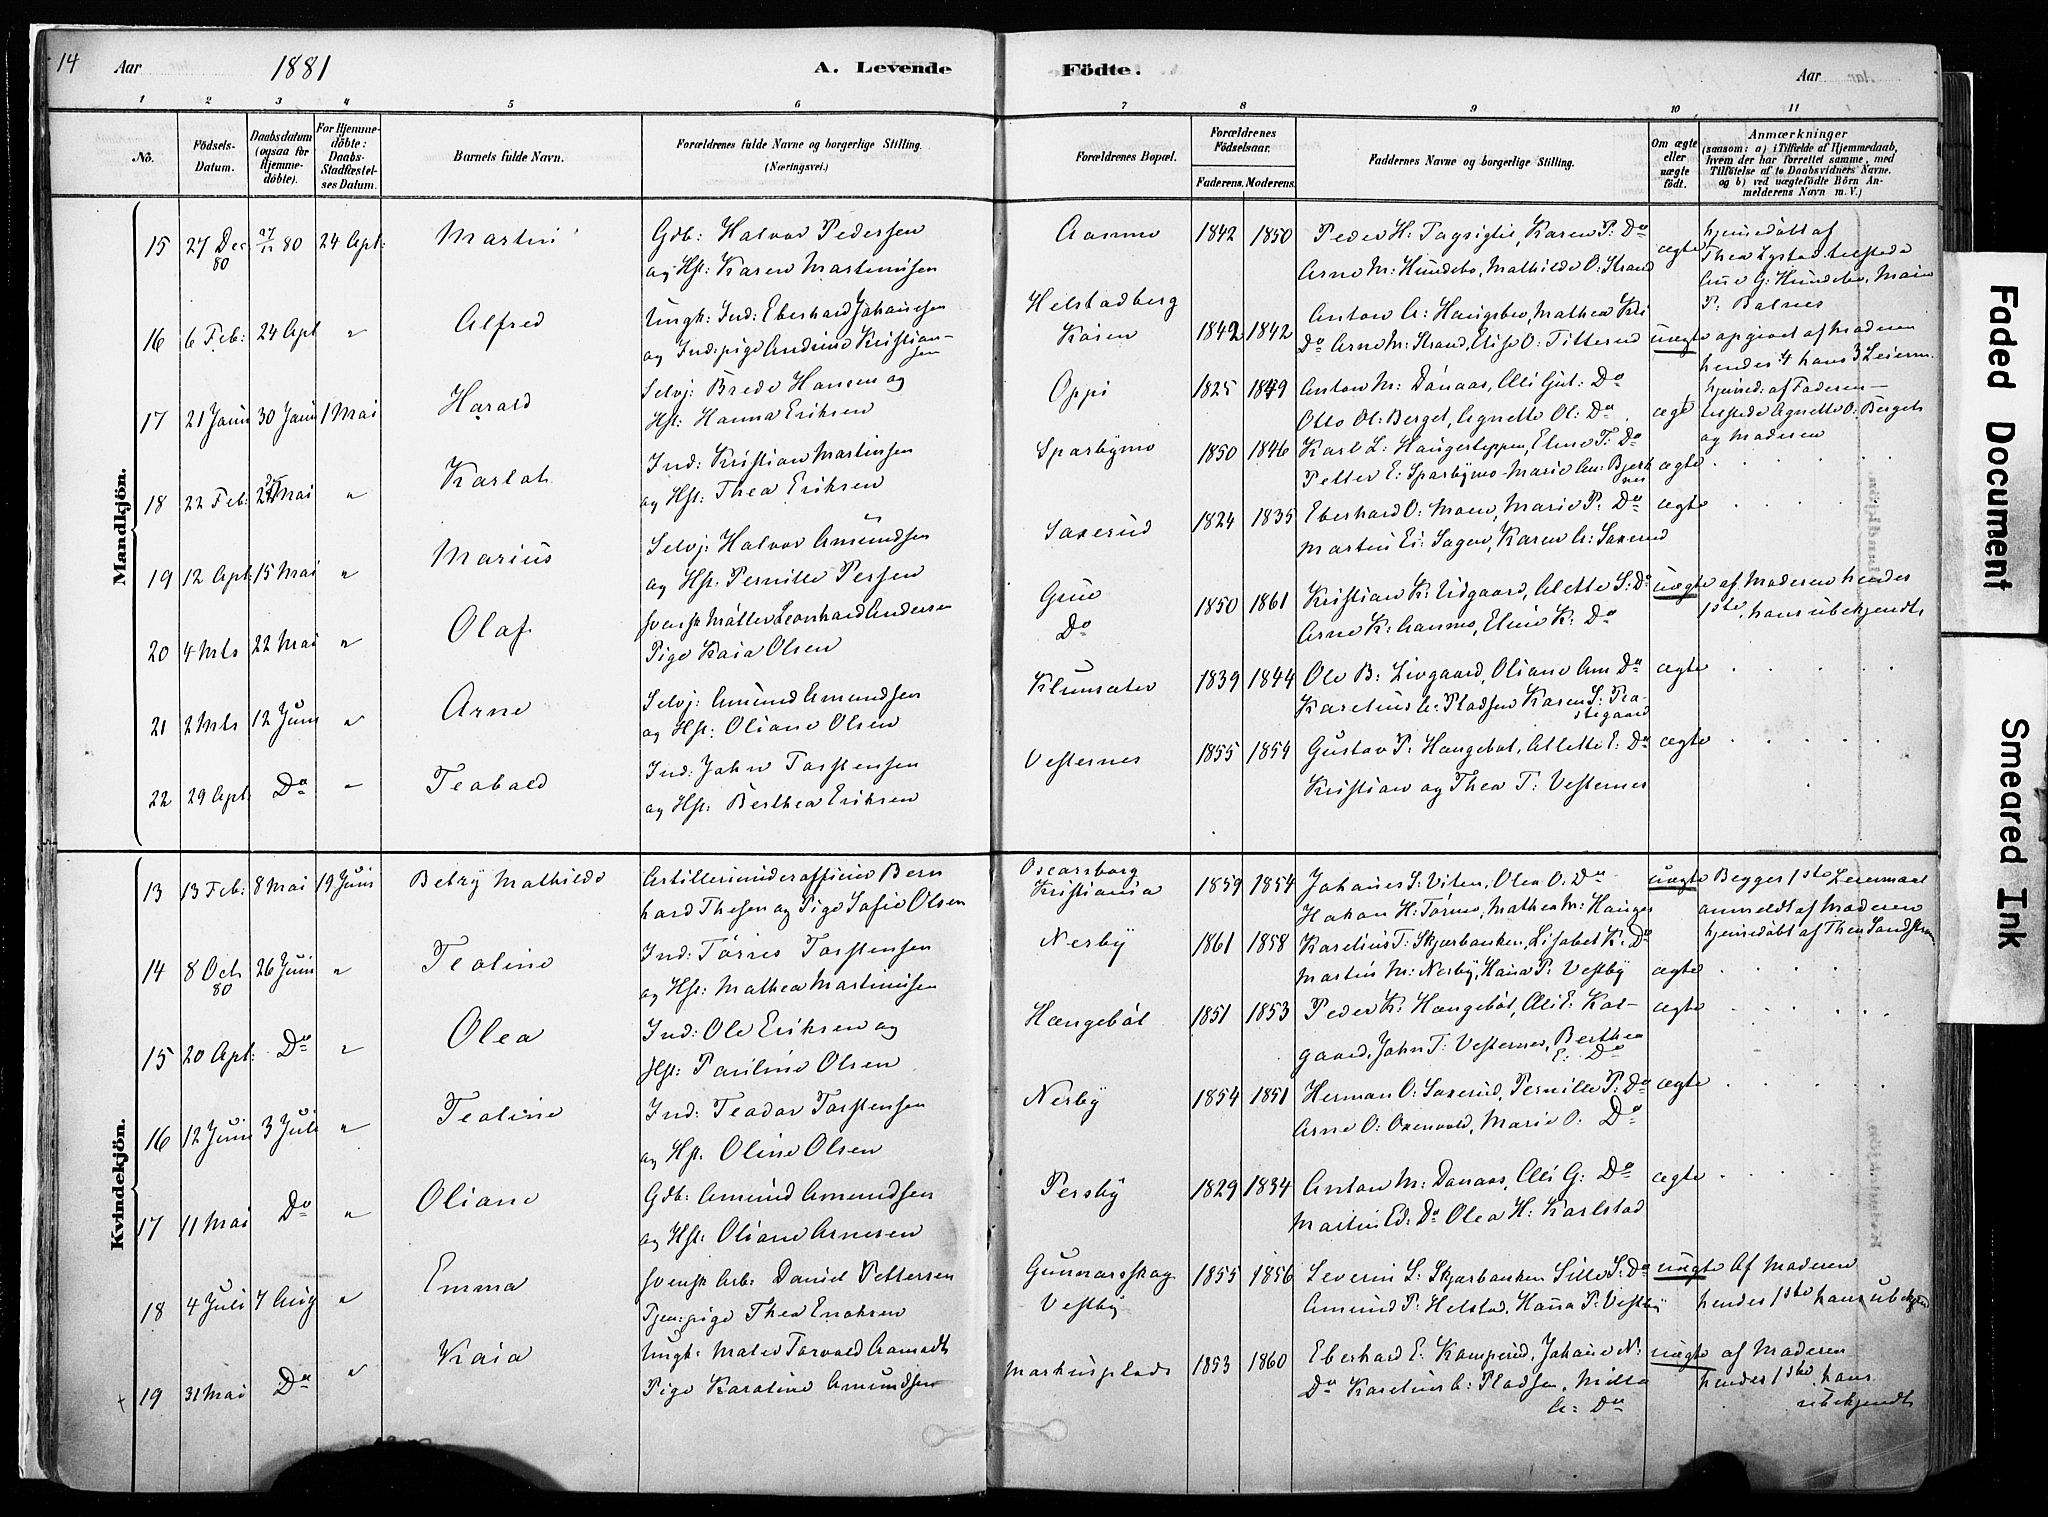 14 Aar 1881 A. Levende Födte. Aar
1 2 3 4 5 6 7 8 9 10 11
No.
Födsels-
Datum.
Daabsdatum
(ogsaa for
Hjemme-
döbte).
For Hjemme-
döbte:
Daabs-
Stadfæstel-
ses Datum.
Barnets fulde Navn.
Forældrenes fulde Navne og borgerlige Stilling.
(Næringsvei.)
Forældrenes Bopæl.
Forældrenes
Födselsaar.
Faderens. Moderens.
Faddernes Navne og borgerlige Stilling.
Om ægte
eller
uægte
födt.
Anmærkninger
(saasom: a) i Tilfælde af Hjemmedaab,
hvem der har forrettet samme, med
Tilföielse af to Daabsvidners Navne.
og b) ved uægtefödte Börn An-
melderens Navn m. V.)
Mandkjön.
15 27 Dec 80 27/12 80 24 Apt: Martin
Gdb: Halvor Pedersen
og Hst: Karen Martinusen
Aanmo 1842 1850
Peder H: Tagsigtie, Karen P: Do
Arne M: Hundebo, Mathilde O: Strand
ægte
hjemedöbt af
Thea Lystad tilstede
Ane G: Hundebo, Marie
P: Balnes
16 6 Feb: 24 Apt " Alfred
Ungk: Ind: Eberhard Johansen
og Ind:pige Andrine Kristian-
sen
Helstadberg
Kosen 1842 1842
Anton A: Haugsbro, Mathea Kri
Do Arne M: Strand, Elise O: Titterud
uægte
opgivet af Moderen
hendes 4 hans 3 Leierm.
17 21 Janu 30 Janu 1 Mai Harald
Selvj: Brede Hansen og
Hst: Hanna Eriksen
Oppi 1825 1849
Anton M: Danaas, Oli Gut: Do
Otto Ol: Berget, Agnette Ol: Do
ægte
hjemed: af Faderen -
tilstede Agnette O: Berget
og Moderen
18 22 Feb: 24 Mai " Karlot
Ind: Kristian Martinsen
og Hst: Thea Eriksen
Sparbymo 1850 1846
Karl L: Haugerteppen, Eline T: Do
Petter E: Sparbymo Marie Am: Bjerk
nes
ægte
19 12 Apt: 15 Mai " Marius
Selvj: Halvor Amundsen
og Hst: Pernille Persen
Saxerud 1824 1835
Eberhard O: Moen, Marie P: Do
Martin Ei: Sagen, Karen A: Saxerud
ægte
20 4 Mts 22 Mai " Olaf
svensk Möller Leonhard Andersen
Pige Kaia Olsen
Grue
Do 1850 1861
Kristian K: Eidgaard, Alette S: Do
Arne K: Aanmo, Eline K: Do
uægte
af Moderen hendes
1ste, hans ubekjendt
21 2 Mts 12 Juni " Arne
Selvj: Amund Amundsen
og Hst: Oliane Olsen
Klumsater 1839 1844
Ole B: Livgaard, Oliane Am Do
Karelius A: Pladsen Karen S: Pra-
stegaard
ægte
22 29 Apt: Do " Teobald
Ind: John Torstensen
og Hst: Berthea Eriksen
Vesternes 1855 1854
Gustav P: Haugebøl, Alette E: Do
Kristian og Thea T: Vesternes
ægte
Kvindekjön.
13 13 Feb: 8 Mai 19 Juni Betzy Mathilde
Artilleriunderofficier Bern
hard Thesen og Pige Sofie Olsen
Oscarsborg
Kristiania 1859 1854
Johanes S: Viten, Olea O: Do
Hakon H: Törmo, Mathea M: Hauger
uægte
Begges 1ste Leiermaal
anmeldt af Moderen
hjemedöbt af Thea Sandstrøm
14 8 Oct 80 26 Juni " Teoline
Ind: Törres Torstensen
og Hst: Mathea Martinusen
Nerby 1861 1858
Karelius T: Skjærbanken, Lisabet K: Do
Martin M: Nerby, Hana P: Vestby
ægte
15 20 Apt: Do " Olea
Ind: Ole Eriksen og
Hst: Pauline Olsen
Haugeböl 1851 1853
Peder K: Haugeböl, Oli E: Kol-
gaard, John T: Vesternes, Berthea
E: Do
ægte
16 12 Juni 3 Juli " Teoline
Ind: Teodor Torstensen
og Hst. Oline Olsen
Nerby 1854 1851
Herman O: Saxerud, Pernille P: Do
Arne O: Oxenvold, Marie O: Do
ægte
17 11 Mai Do " Oliane
Gdb: Amund Amundsen
og Hst: Oliane Arnesen
Persby 1829 1834
Anton M: Danaas, Oli G: Do
Martin Ed: Do Olea H: Karlstad
ægte
18 4 Juli 7 Aug " Emma
svensk Arb: Daniel Pettersen
Tjen:pige Thea Enoksen
Gunnarsskog
Vestby 1855 1856
Severin S: Skjærbanken Sille S: Do
Amund P: Helstad, Hana P: Vestby
uægte
Af Moderen
hendes 1ste hans ubekjen
19 31 Mai Do " Kaia
Ungk: Mater Torvald Aamodt
Pige Karoline Amundsen
Markusplads 1853 1860
Eberhard E: Kamperud, Johane N:
Do Karelius A: Pladsen, Milla
A: Do
uægte
af Moderen
hendes 1ste, hans
ubekjendt
Faded Document
Smeared Ink